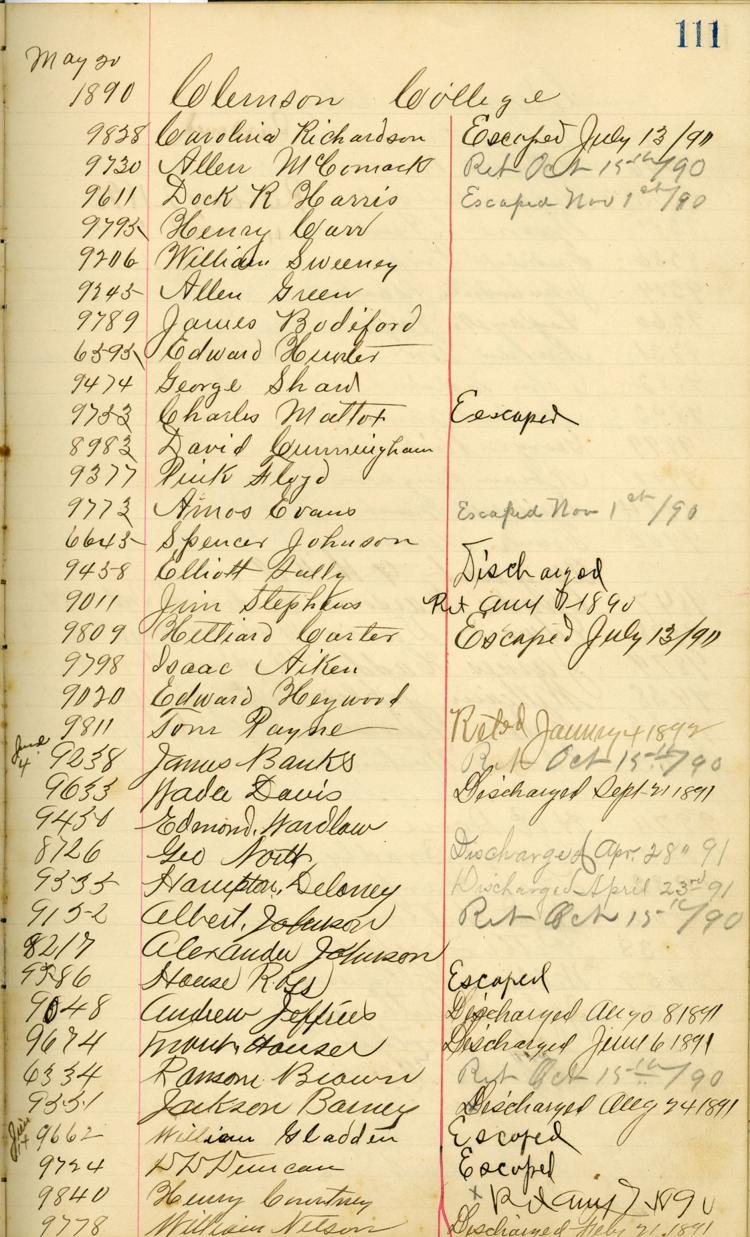 111
May 20
1890 Clemson College
9828 Carolina Richardson Escaped July 13/90
9730 Allen McComack Ret Oct 15th/90
9611 Dock R Harris Escaped Nov 1st/90
9795 Henry Carr
9206 William Sweeney
9245 Allen Green
9789 James Bodiford
6595 Edward Hunter
9474 George Shard
9733 Charles Mattox Eescaped
8983 David Cunningham
9377 Pink Floyd
9773 Amos Evans Escaped Nov 1st/90
6645 Spencer Johnson
9458 Elliott Sully Discharged
9011 Jim Stephens Ret Aug 7 1890
9809 Hilliard Carter Escaped July 13/90
9798 Isaac Aiken
9020 Edward Heywood
9811 Tom Payne January 4 1892
June 4 9238 James Banks Ret Oct 15th/90
9633 Wade Davis Discharged Sept 21 1891
Edmond, Wardlaw
8726 Geo North Discharged Apr. 28" 91
9335 Hampton, Deloney Discharged April 23rd 91
9152 Albert, Johnson Ret Oct 15th/90
8217 Alexander Johnson
9586 House Ross Escaped
9048 Andrew Jeffries Discharged Aug 8 1891
9674 Houser Discharged June 6 1891
6334 Ransom Brown Ret Oct 15th/90
9351 Jackson Barney Discharged Aug 24 1891
9662 William Gladden Escoped
9724 D D Duncan Escoped
9840 Henry Courtney x Ret Aug 7 1890
9778 William Nelson Discharged Feby 21, 1891